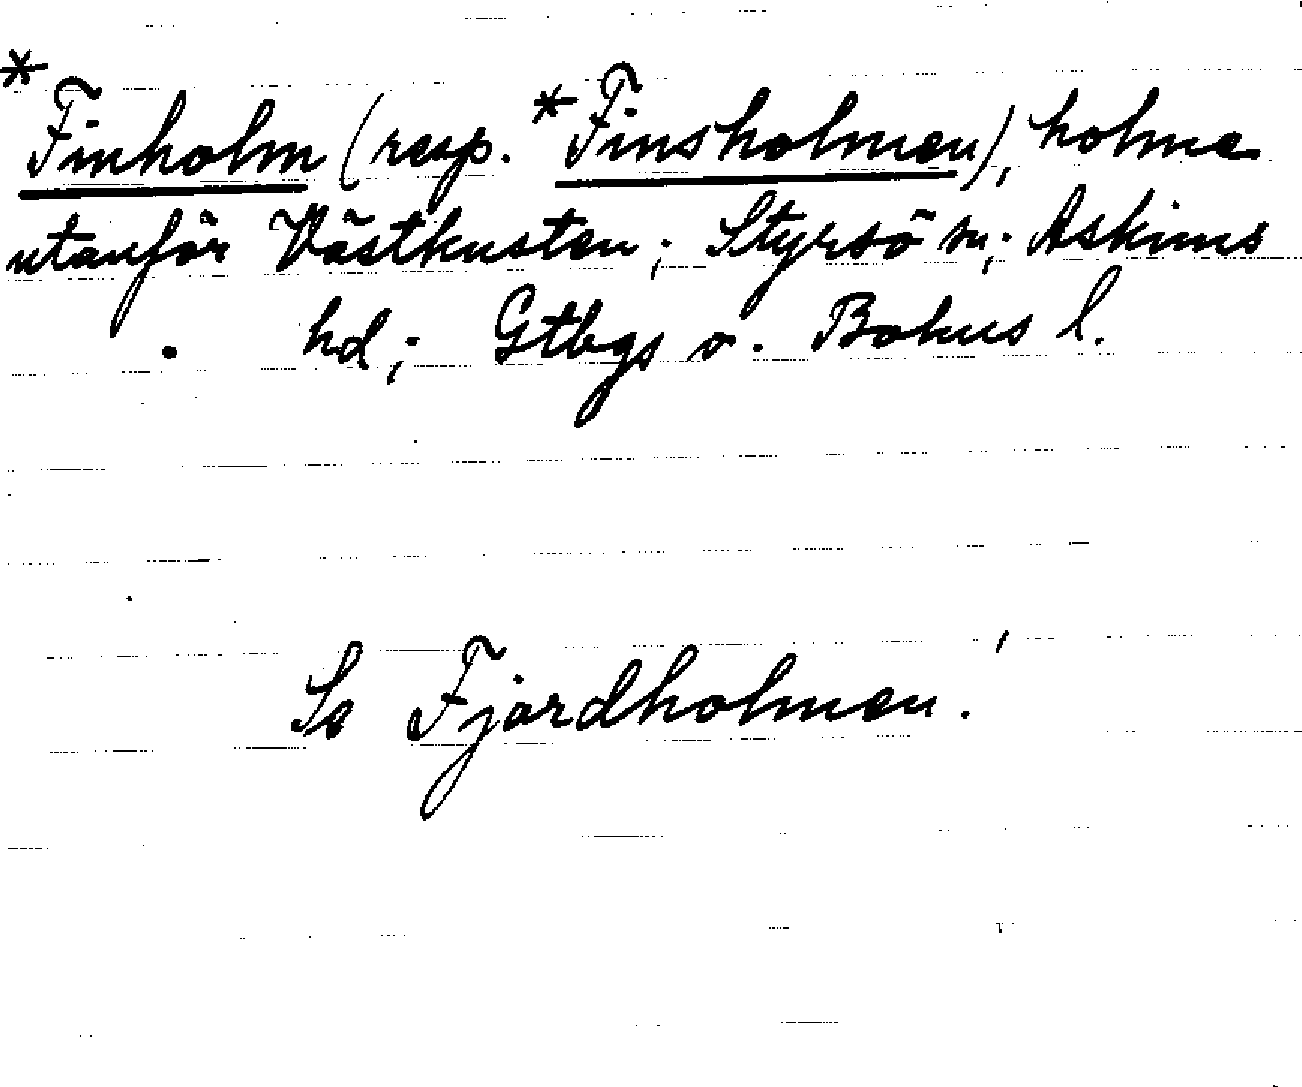 *Finholm (resp. *Finsholmen), holme
utanför Västkusten; Styrsö sn; Askims
hd; Gtbgs o. Bohus l.
Se Fjordholmen.